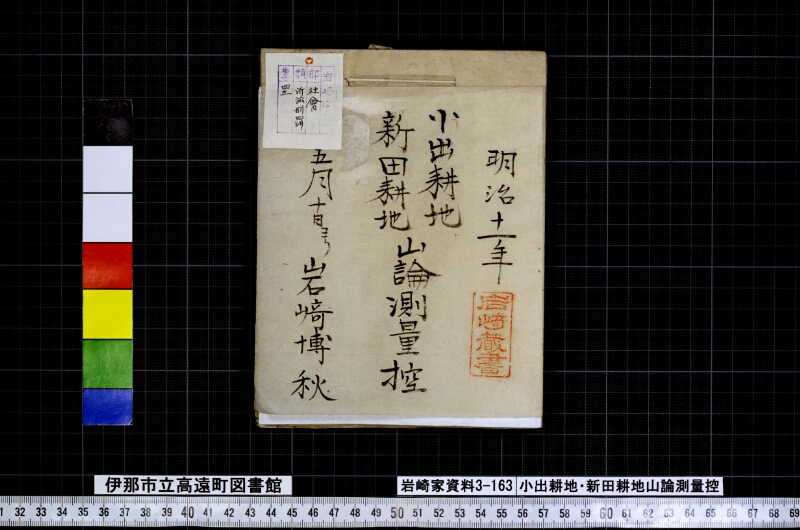 明治十一年
岩崎蔵書
小出耕地
新田耕地
山論測量控
五月十日ヨリ
岩﨑博秋
部
社會
類
冊
伊那市立高遠町図書館
岩崎家資料3-163
小出耕地・新田耕地山論測量控
35 36 37 38 39 40 41 42 43 44 45 46 47 48 49 50 51 52 53 54 55 56 57 58 59 60 61 62 63 64 65 66 67 68 69